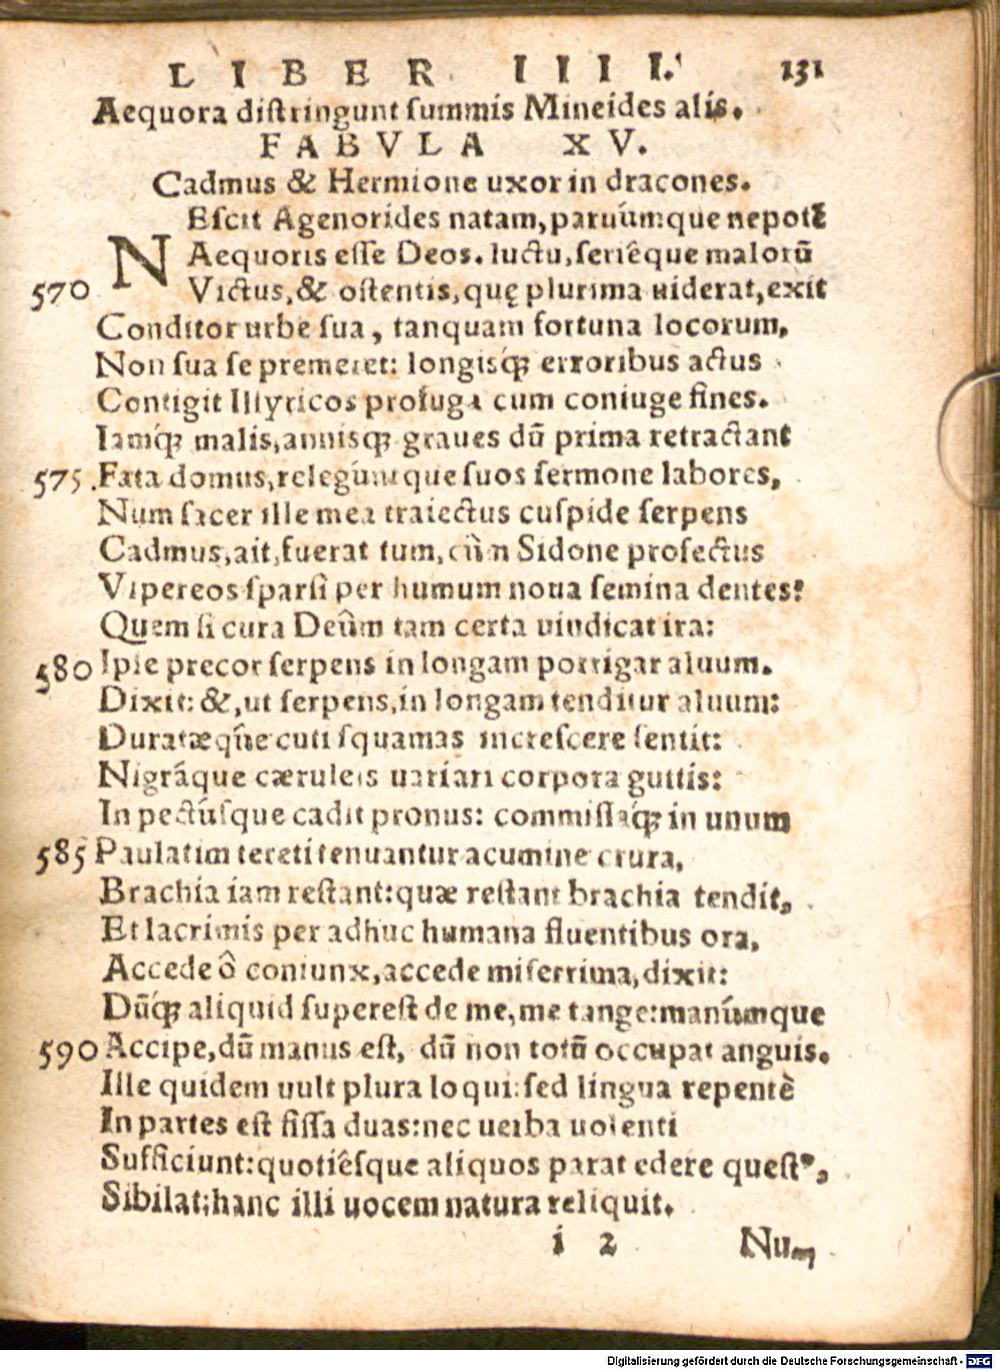 LIBER IIII. 131
Aequora distringunt summis Mineides alis.
FABVLA XV.
Cadmus & Hermione uxor in dracones.
NEscit Agenorides natam, paruúmque nepotẽ
Aequoris esse Deos. luctu, seriêque malorũ
570 Victus, & ostentis, quę plurima uiderat, exit
Conditor urbe sua, tanquam fortuna locorum,
Non sua se premeret: longisq́ꝫ erroribus actus
Contigit Illyricos profuga cum coniuge fines.
Iamq́ꝫ malis, annisqꝫ graues dũ prima retractant
575 Fata domus, relegúntque suos sermone labores,
Num sacer ille mea traiectus cuspide serpens
Cadmus, ait, fuerat tum, cùm Sidone profectus
Vipereos sparsi per humum noua semina dentes?
Quem si cura Deûm tam certa uindicat ira:
580 Ipse precor serpens in longam porrigar aluum.
Dixit: &, ut serpens, in longam tenditur aluum:
Duratæq́ue cuti squamas increscere sentit:
Nigráque cæruleis uariari corpora guttis:
In pectúsque cadit pronus: commissaq́ꝫ in unum
585 Paulatim tereti tenuantur acumine crura,
Brachia iam restant: quæ restant brachia tendit,
Et lacrimis per adhuc humana fluentibus ora,
Accede ô coniunx, accede miserrima, dixit:
Dũq́ꝫ aliquid superest de me, me tange: manúmque
590 Accipe, dũ manus est, dũ non totũ occupat anguis.
Ille quidem uult plura loqui: sed lingua repentè
In partes est fissa duas: nec uerba uolenti
Sufficiunt: quotiêsque aliquos parat edere questꝰ,
Sibilat; hanc illi uocem natura reliquit.
i 2 Num
Digitalisierung gefördert durch die Deutsche Forschungsgemeinschaft - DFG